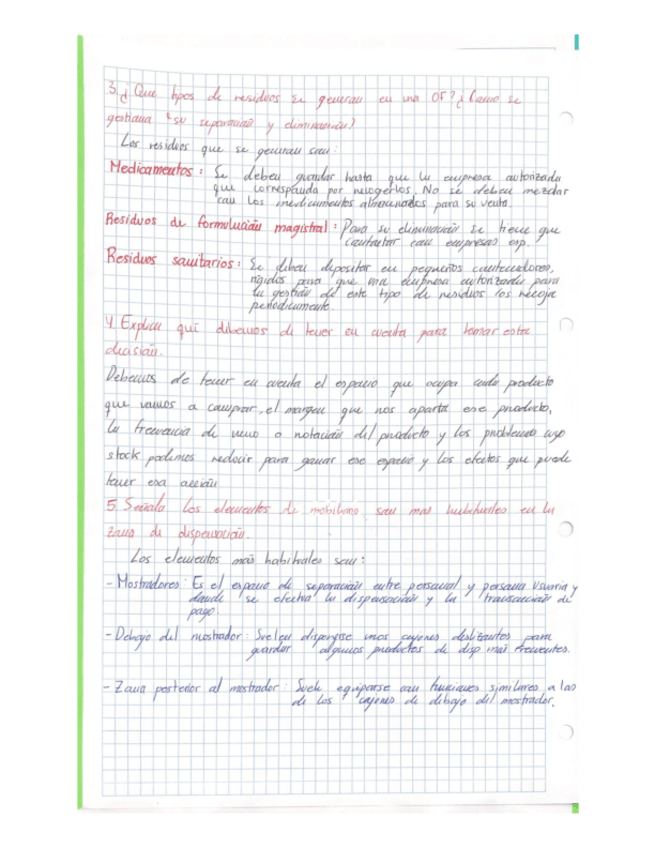 3. ¿Que tipos de residuos se generan en una OF? ¿Como se
gestiona su separación y eliminación?
Los residuos que se generan son:
Medicamentos: Se deben guardar hasta que la empresa autorizada
que corresponda por recogerlos. No se deben mezclar
con los medicamentos almacenados para su venta.
Residuos de formulación magistral: Para su eliminación se tiene que
contactar con empresas esp.
Residuos sanitarios: Se deben depositar en pequeños contenedores,
rígidos para que una empresa autorizada para
la gestión de este tipo de residuos los recoja
periodicamente.
4. Explica qué debemos de tener en cuenta para tomar esta
decisión.
Debemos de tener en cuenta el espacio que ocupa cada producto
que vamos a comprar, el margen que nos aporta ese producto,
la frecuencia de uso o rotación del producto y los productos cuyo
stock podemos reducir para ganar ese espacio y los efectos que puede
tener esa acción
5. Señala los elementos de mobiliario son mas habituales en la
zona de dispensación.
Los elementos más habituales son:
- Mostradores: Es el espacio de separación entre personal y persona usuaria y
donde se efectua la dispensación y la transacción de
pago.
- Debajo del mostrador: Suelen disponerse unos cajones deslizantes para
guardar algunos productos de disp más frecuentes.
- Zona posterior al mostrador: Suele equiparse con funciones similares a las
de los cajones de debajo del mostrador.